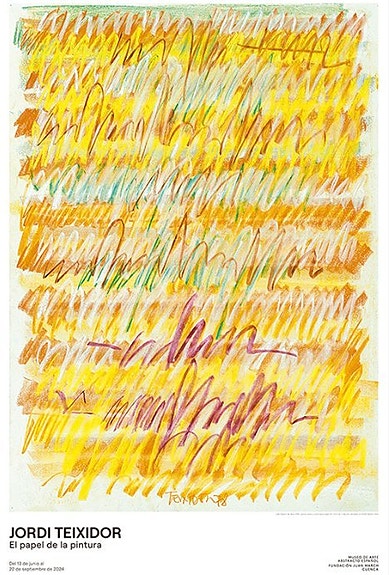 JORDI TEIXIDOR
El papel de la pintura
Del 13 de junio al
20 de septiembre de 2024
MUSEO DE ARTE
ABSTRACTO ESPAÑOL
FUNDACIÓN JUAN MARCH
CUENCA